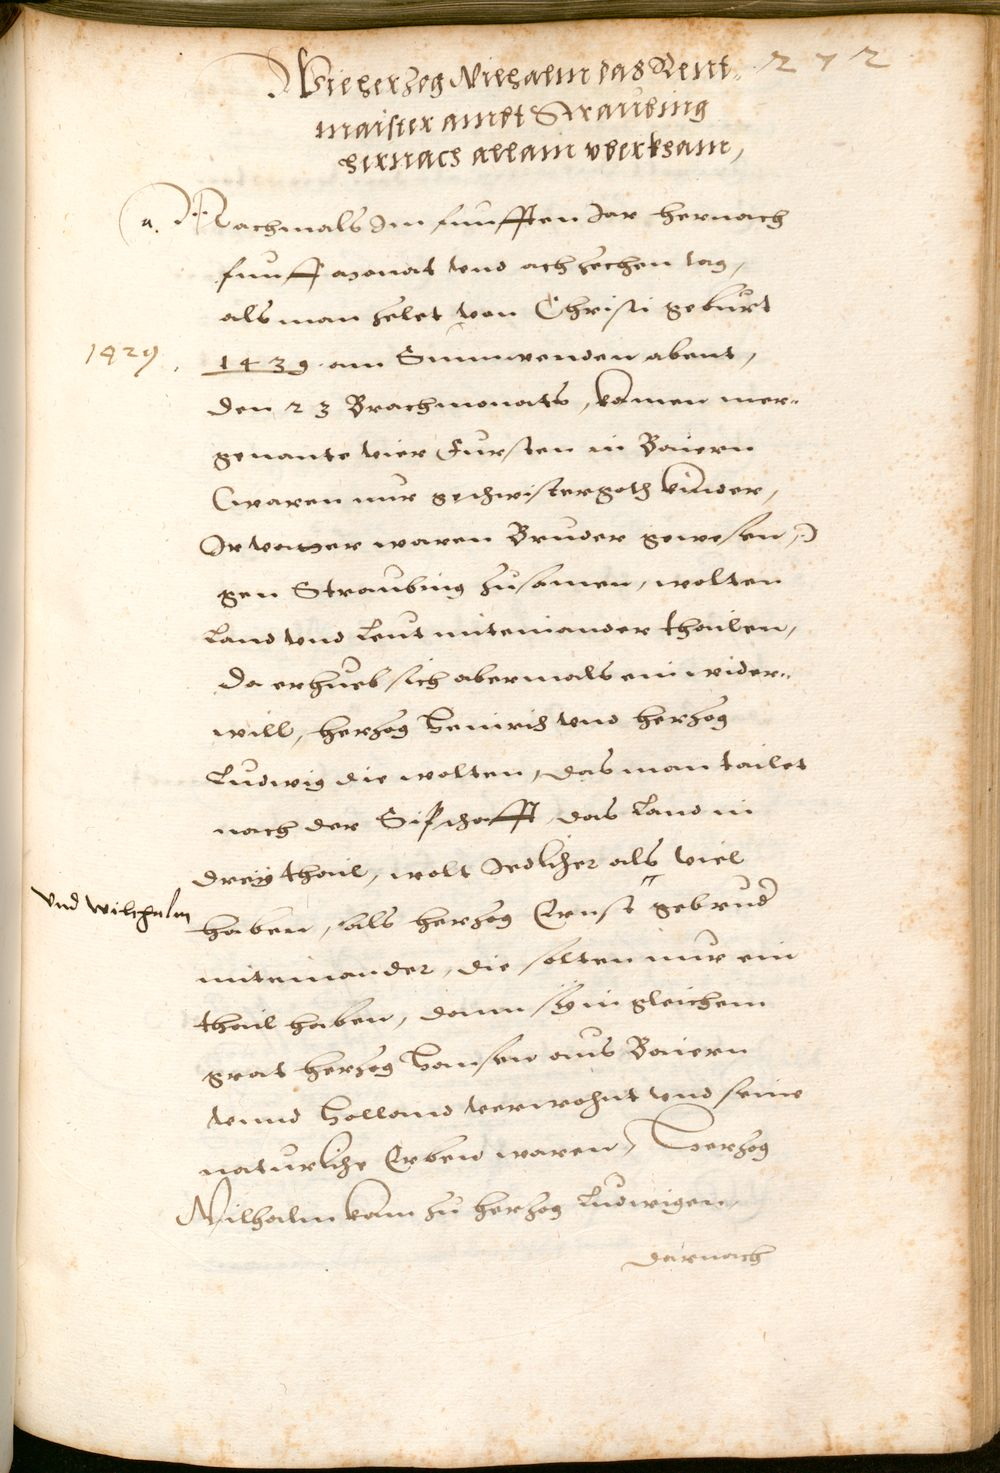 272
Wie herzog Wilhalm das Rent-
maister ambt Straubing
hernach allain uberkham,
a. Nachmals Im funfften Jar hernach
funff monat vnd achzechen tag,
als man zelet von Christi geburt
1429. 1439. am Sunnwenden abent,
den 23 Brachmonats, kamen mer-
genante vier Fursten in Baiern
(waren nur geschwistergoth kinder,
Ir vatter waren Bruder gewesen,)
gen Straubing zusamen, wolten
Land vnd Leut miteinander thailen,
Da erhueb sich abermals ein wider-
will, herzog Heinrich vnd herzog
Ludwig die wolten, das man tailet
nach der Sipschafft, das Land in
dreÿ thail, wolt Iedlicher als viel
vnd wilchelm haben, als herzog Ernst " gebrued
miteinander, die solten nur ein
thail haben, dann sÿ in gleichem
grat herzog Hansen aus Baiern
vnnd Holland verwohnt vnd seine
naturliche Erben waren, Herzog
Wilhalm kam zu herzog Ludwigen,
darnach